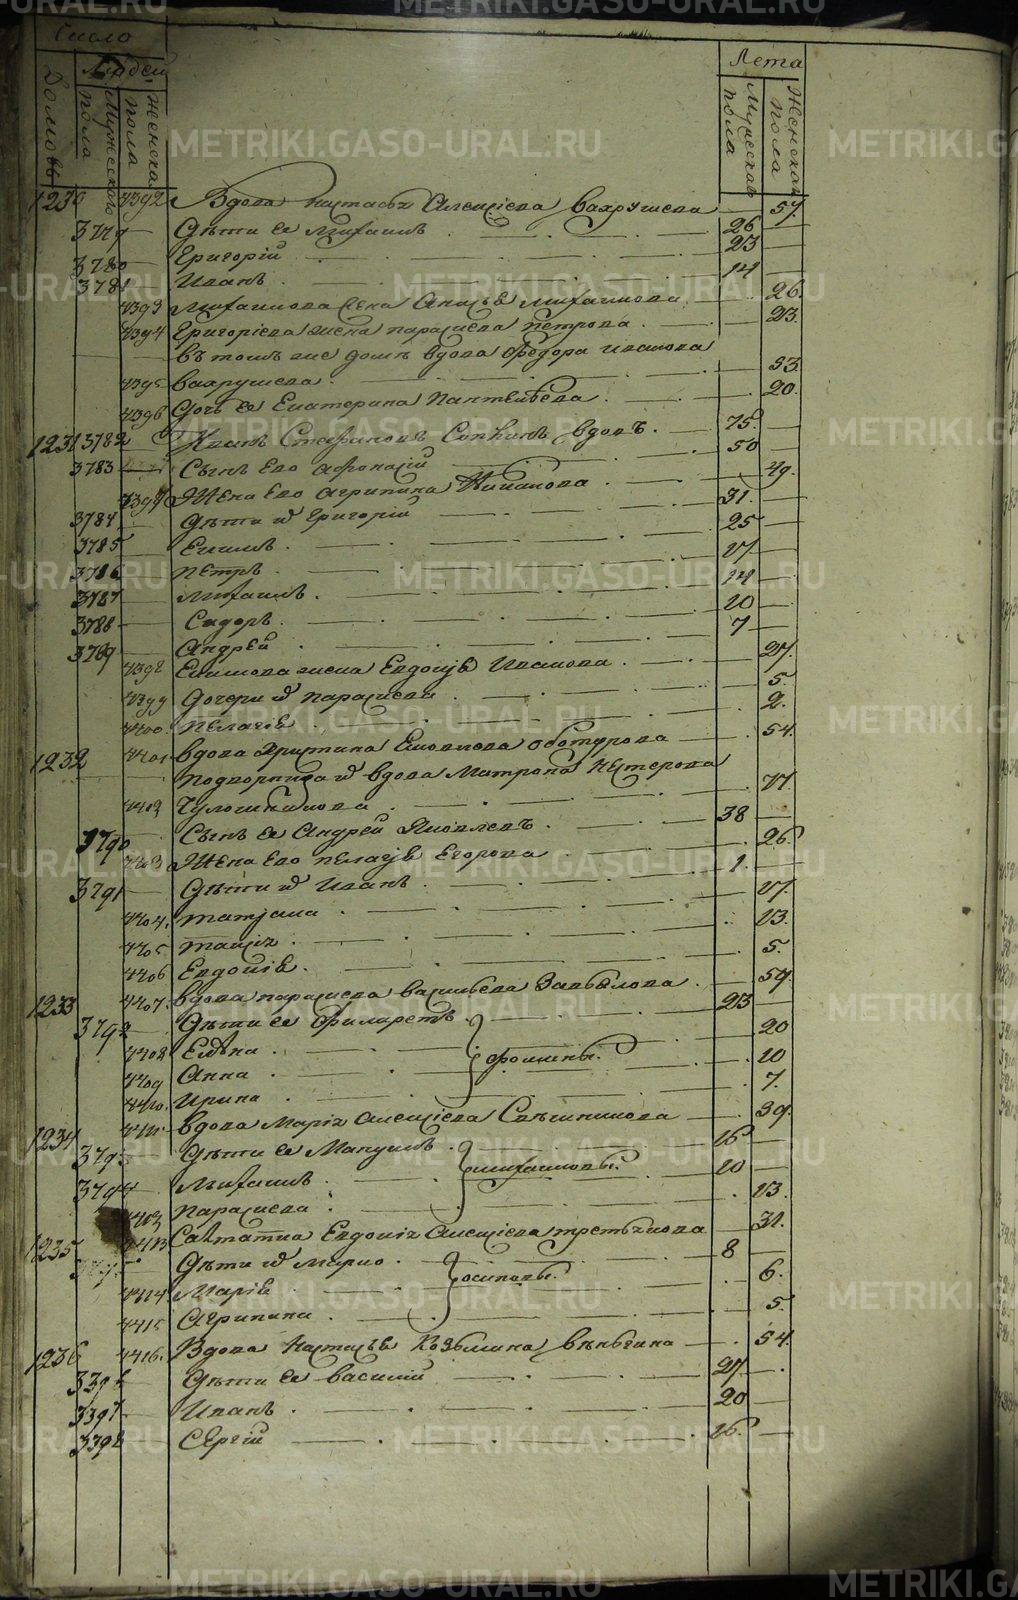 Число
Людей
Лета
Домовъ
Мужеска пола
Женска пола
Мужеска пола
Женска пола
1230 4392 Вдова Настасья Алексиева Вахрушева 57
3779 Дѣти ея Михаилъ 26
3780 Григорій 23
3781 Иванъ 14
4393 Михаилова жена Михаилова 26
4394 Григоріева жена Параскева Петрова 23
Въ томъ же домѣ вдова Федора Иванова
4395 Вахрушева 53
4396 Дочь ея Екатерина Пантелѣева 20
1231 3782 Иванъ Стефановъ вдовъ 75
3783 Сынъ Его Афонасій 50
4397 Жена Его Агрипина 49
3784 Дѣти их Григорій 31
3785 Екимъ 25
3786 Петръ 17
3787 Михаилъ 14
3788 Сидоръ 10
3789 Андрей 7
4398 Екимова жена Евдокія Иванова 27
4399 Дочери их Параскева 5
4400 Пелагія 2
1232 4401 Вдова Христина 54
Подворница их вдова Матрона Нестерова
4402 71
3790 Сынъ ея Андрей Яковлевъ 38
4403 Жена Его Пелагія Егорова 26
3791 Дѣти их Иванъ 1
4404 Татіана 17
4405 Таисія 13
4406 Евдокія 5
1233 4407 Вдова Параскева Васильева Завьялова 57
3792 Дѣти ея Филаретъ 23
4408 Елена 20
Фомины
4409 Анна 10
4410 Ирина 7
1234 4411 Вдова Марія Алексіева Свѣшникова 39
3793 Дѣти ея Мануилъ 16
3794 Михаилъ 10
Михаиловы
Параскева 13
1235 4413 Салдатка Евдокія Алексіева Третьякова 31
Дѣти их 8
4414 Марія 6
Осиповы
4415 Агрипина 5
1236 4416 Вдова Настасья Козьмина 54
Дѣти ея Василій 27
3397 Иванъ 20
3398 Сергій 16
METRIKI.GASO-URAL.RU